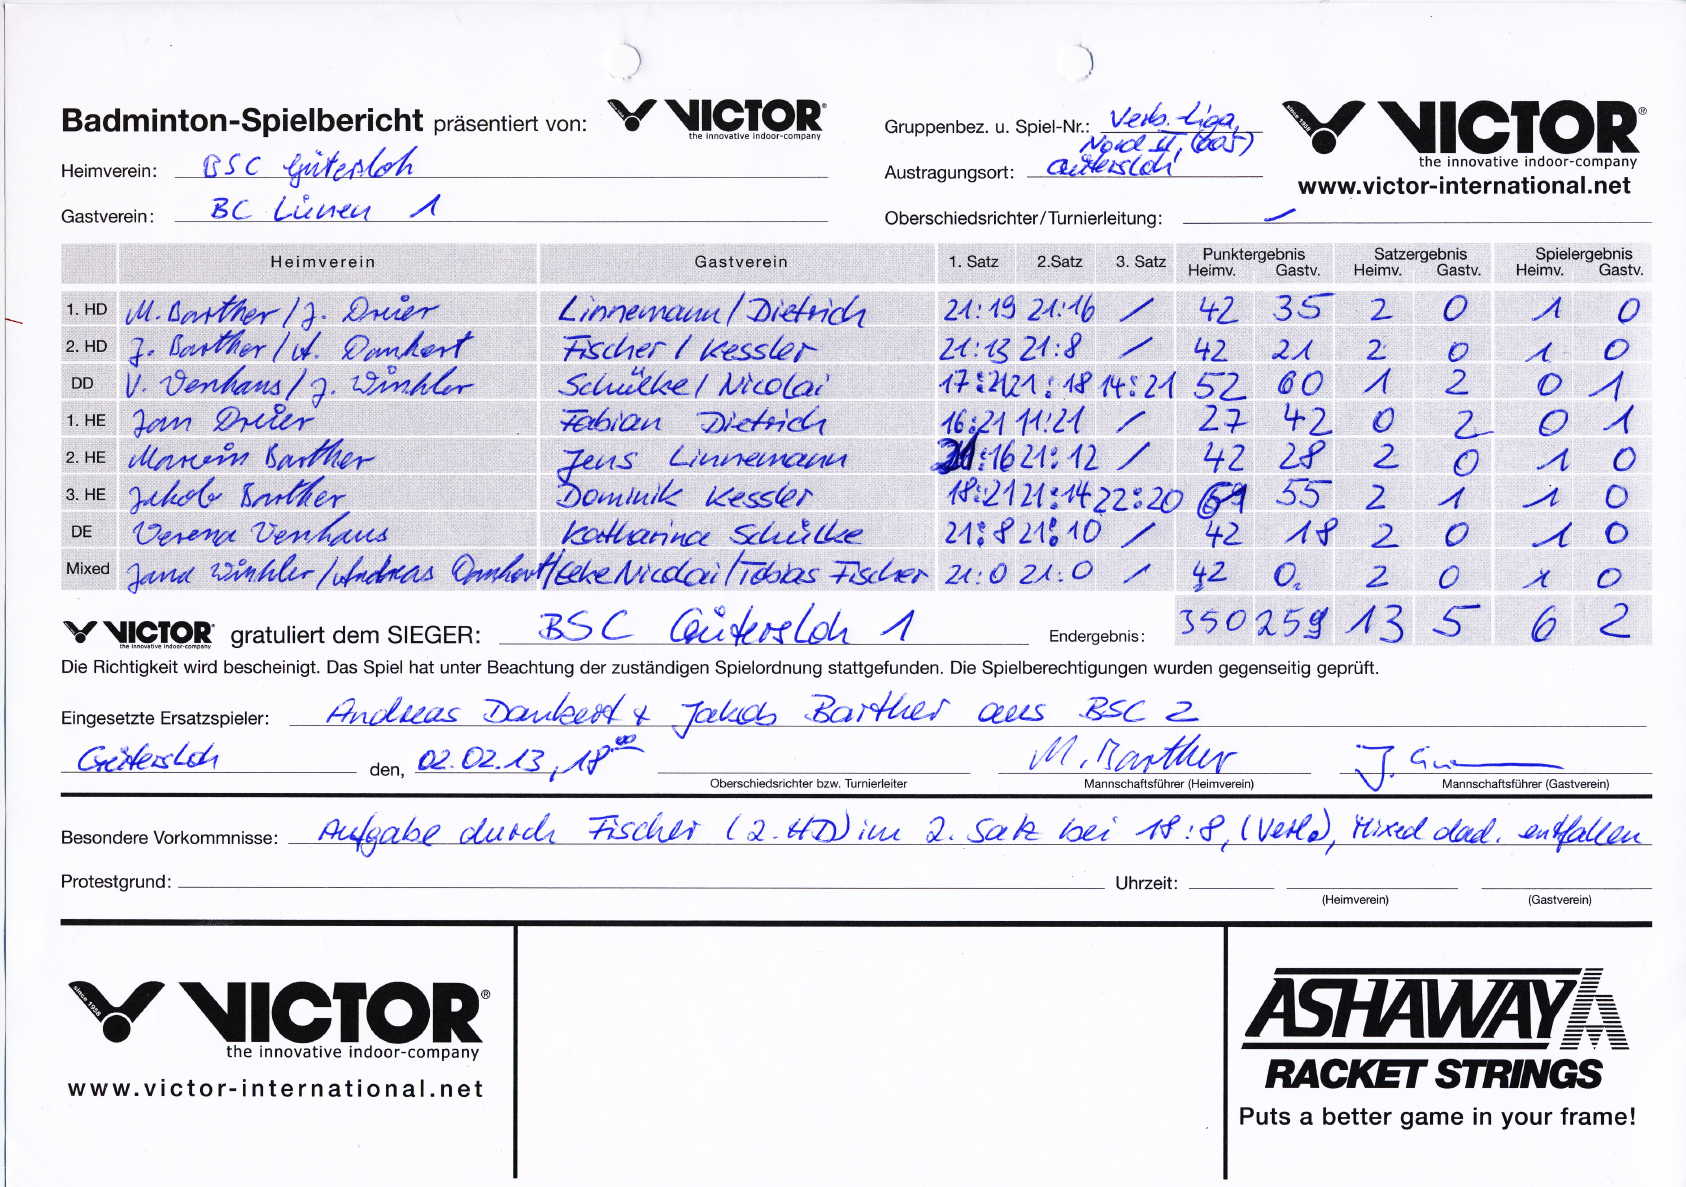 Badminton-Spielbericht präsentiert von: VICTOR® the innovative indoor-company
Gruppenbez. u. Spiel-Nr.: Verb.-Liga,
Nord II, (005)
VICTOR® since 1968 the innovative indoor-company
www.victor-international.net
Heimverein: BSC Gütersloh
Austragungsort: Gütersloh
Gastverein: BC Lünen 1
Oberschiedsrichter/Turnierleitung: /
Heimverein Gastverein 1. Satz 2.Satz 3. Satz Punktergebnis Satzergebnis Spielergebnis
Heimv. Gastv. Heimv. Gastv. Heimv. Gastv.
1. HD M. Barther / J. Dreier Linnemann / Dietrich 21:19 21:16 / 42 35 2 0 1 0
2. HD J. Barther / A. Dankert Fischer / Kessler 21:13 21:8 / 42 21 2 0 1 0
DD V. Venhaus / J. Winkler Schülke / Nicolai 17:21 21:18 14:21 52 60 1 2 0 1
1. HE Jan Dreier Fabian Dietrich 16:21 11:21 / 27 42 0 2 0 1
2. HE Marvin Barther Jens Linnemann 21:16 21:12 / 42 28 2 0 1 0
3. HE Jakob Barther Dominik Kessler 18:21 21:14 22:20 61 55 2 1 1 0
DE Verena Venhaus Katharina Schülke 21:8 21:10 / 42 18 2 0 1 0
Mixed Jana Winkler / Andreas Dankert / Nicolai / Tobias Fischer 21:0 21:0 / 42 0 2 0 1 0
VICTOR® the innovative indoor-company gratuliert dem SIEGER: BSC Gütersloh 1 Endergebnis: 350 259 13 5 6 2
Die Richtigkeit wird bescheinigt. Das Spiel hat unter Beachtung der zuständigen Spielordnung stattgefunden. Die Spielberechtigungen wurden gegenseitig geprüft.
Eingesetzte Ersatzspieler: Andreas Dankert + Jakob Barther aus BSC 2
Gütersloh den, 02.02.13, 18⁰⁰ M. Barther J.
Oberschiedsrichter bzw. Turnierleiter Mannschaftsführer (Heimverein) Mannschaftsführer (Gastverein)
Besondere Vorkommnisse: Aufgabe durch Fischer (2. HD) im 2. Satz bei 18:8, (Verl.), Mixed dad. entfallen
Protestgrund: Uhrzeit:
(Heimverein) (Gastverein)
VICTOR® since 1968
the innovative indoor-company
www.victor-international.net
ASHAWAY
RACKET STRINGS
Puts a better game in your frame!